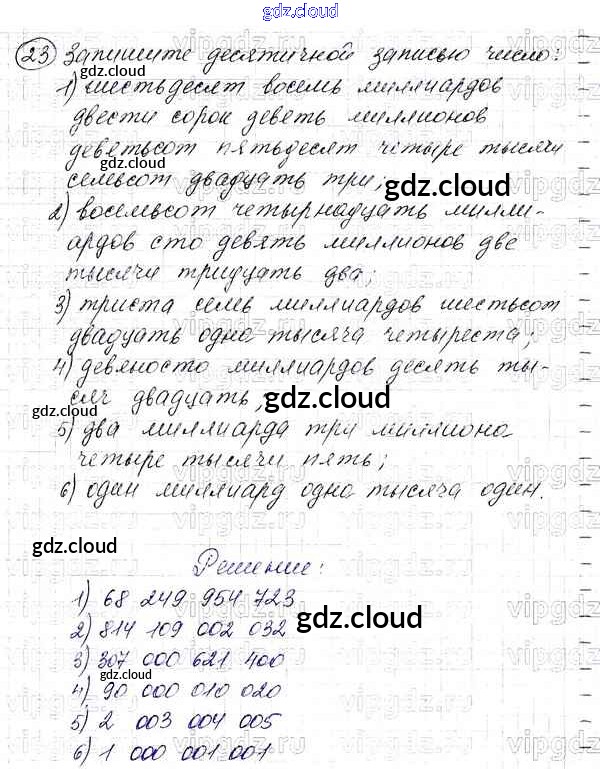 gdz.cloud
23 Запишите десятичной записью число:
gdz.cloud
1) шестьдесят восемь миллиардов
двести сорок девять миллионов
девятьсот пятьдесят четыре тысячи
gdz.cloud
семьсот двадцать три;
gdz.cloud
2) восемьсот четырнадцать милли-
ардов сто девять миллионов две
тысячи тридцать два;
3) триста семь миллиардов шестьсот
двадцать одна тысяча четыреста;
4) девяносто миллиардов десять ты-
сяч двадцать;
gdz.cloud
gdz.cloud
5) два миллиарда три миллиона
четыре тысячи пять;
6) один миллиард одна тысяча один.
gdz.cloud
Решение:
1) 68 249 954 723
gdz.cloud
2) 814 109 002 032
3) 307 000 621 400
gdz.cloud
4) 90 000 010 020
5) 2 003 004 005
6) 1 000 001 001